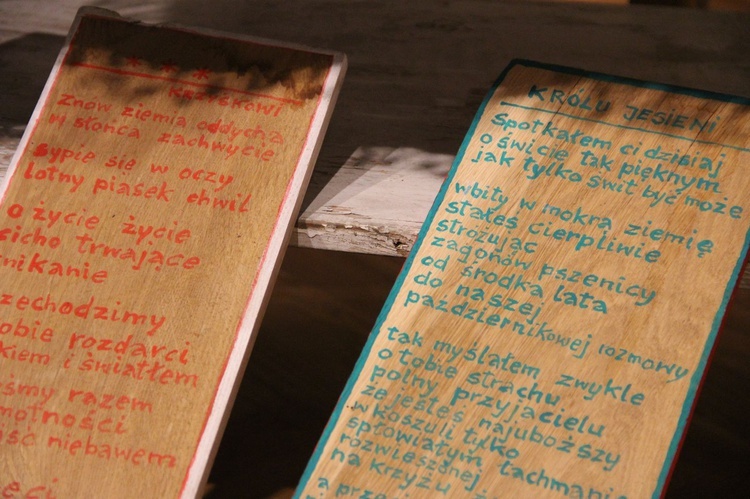 * * *
KRZYSKOWI
znów ziemia oddycha
w słońca zachwycie
sypie się w oczy
lotny piasek chwil
o życie życie
cicho trwające
nikanie
zechodzimy
obie rozdarci
kiem i światłem
śmy razem
motności
ość niebawem
KRÓLU JESIENI
Spotkałem ci dzisiaj
o świcie tak pięknym
jak tylko świt być może
wbity w mokrą ziemię
stałeś cierpliwie
stróżując
zagonów pszenicy
od środka lata
do naszej
październikowej rozmowy
tak myślałem zwykle
o tobie strachu
polny przyjacielu
że jesteś najuboższy
w koszuli tylko
spłowiałym łachmanie
rozwieszonej
na krzyżu
a prze